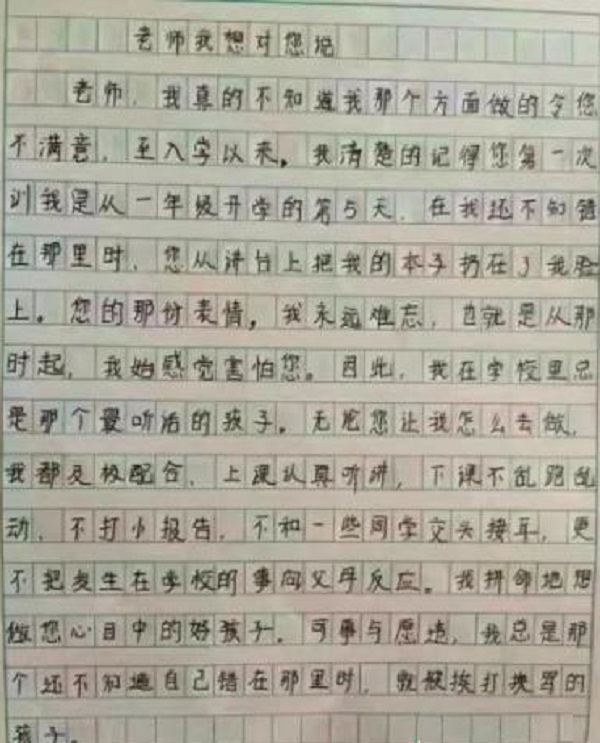 老师我想对您说
老师，我真的不知道我那个方面做的令您
不满意，至入学以来。我清楚的记得您第一次
训我是从一年级开学的第5天，在我还不知错
在那里时，您从讲台上把我的本子扔在了我脸
上。您的那份表情，我永远难忘，也就是从那
时起，我始感觉害怕您。因此，我在学校里总
是那个最听话的孩子。无论您让我怎么去做，
我都及极配合，上课认真听讲，下课不乱跑乱
动，不打小报告，不和一些同学交头接耳，更
不把发生在学校的事向父母反应。我拼命地想
做您心目中的好孩子。可事与愿违，我总是那
个还不知道自己错在那里时，就被挨打挨骂的
孩子。